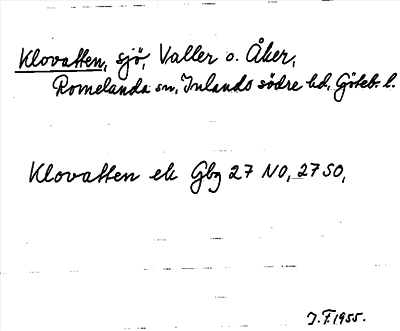 Klovatten, sjö, Valler o. Åker,
Romelanda sn, Inlands södre hd, Göteb. l.
Klovatten ek Gbg 27 NO, 27 SO,
J. F. 1955.